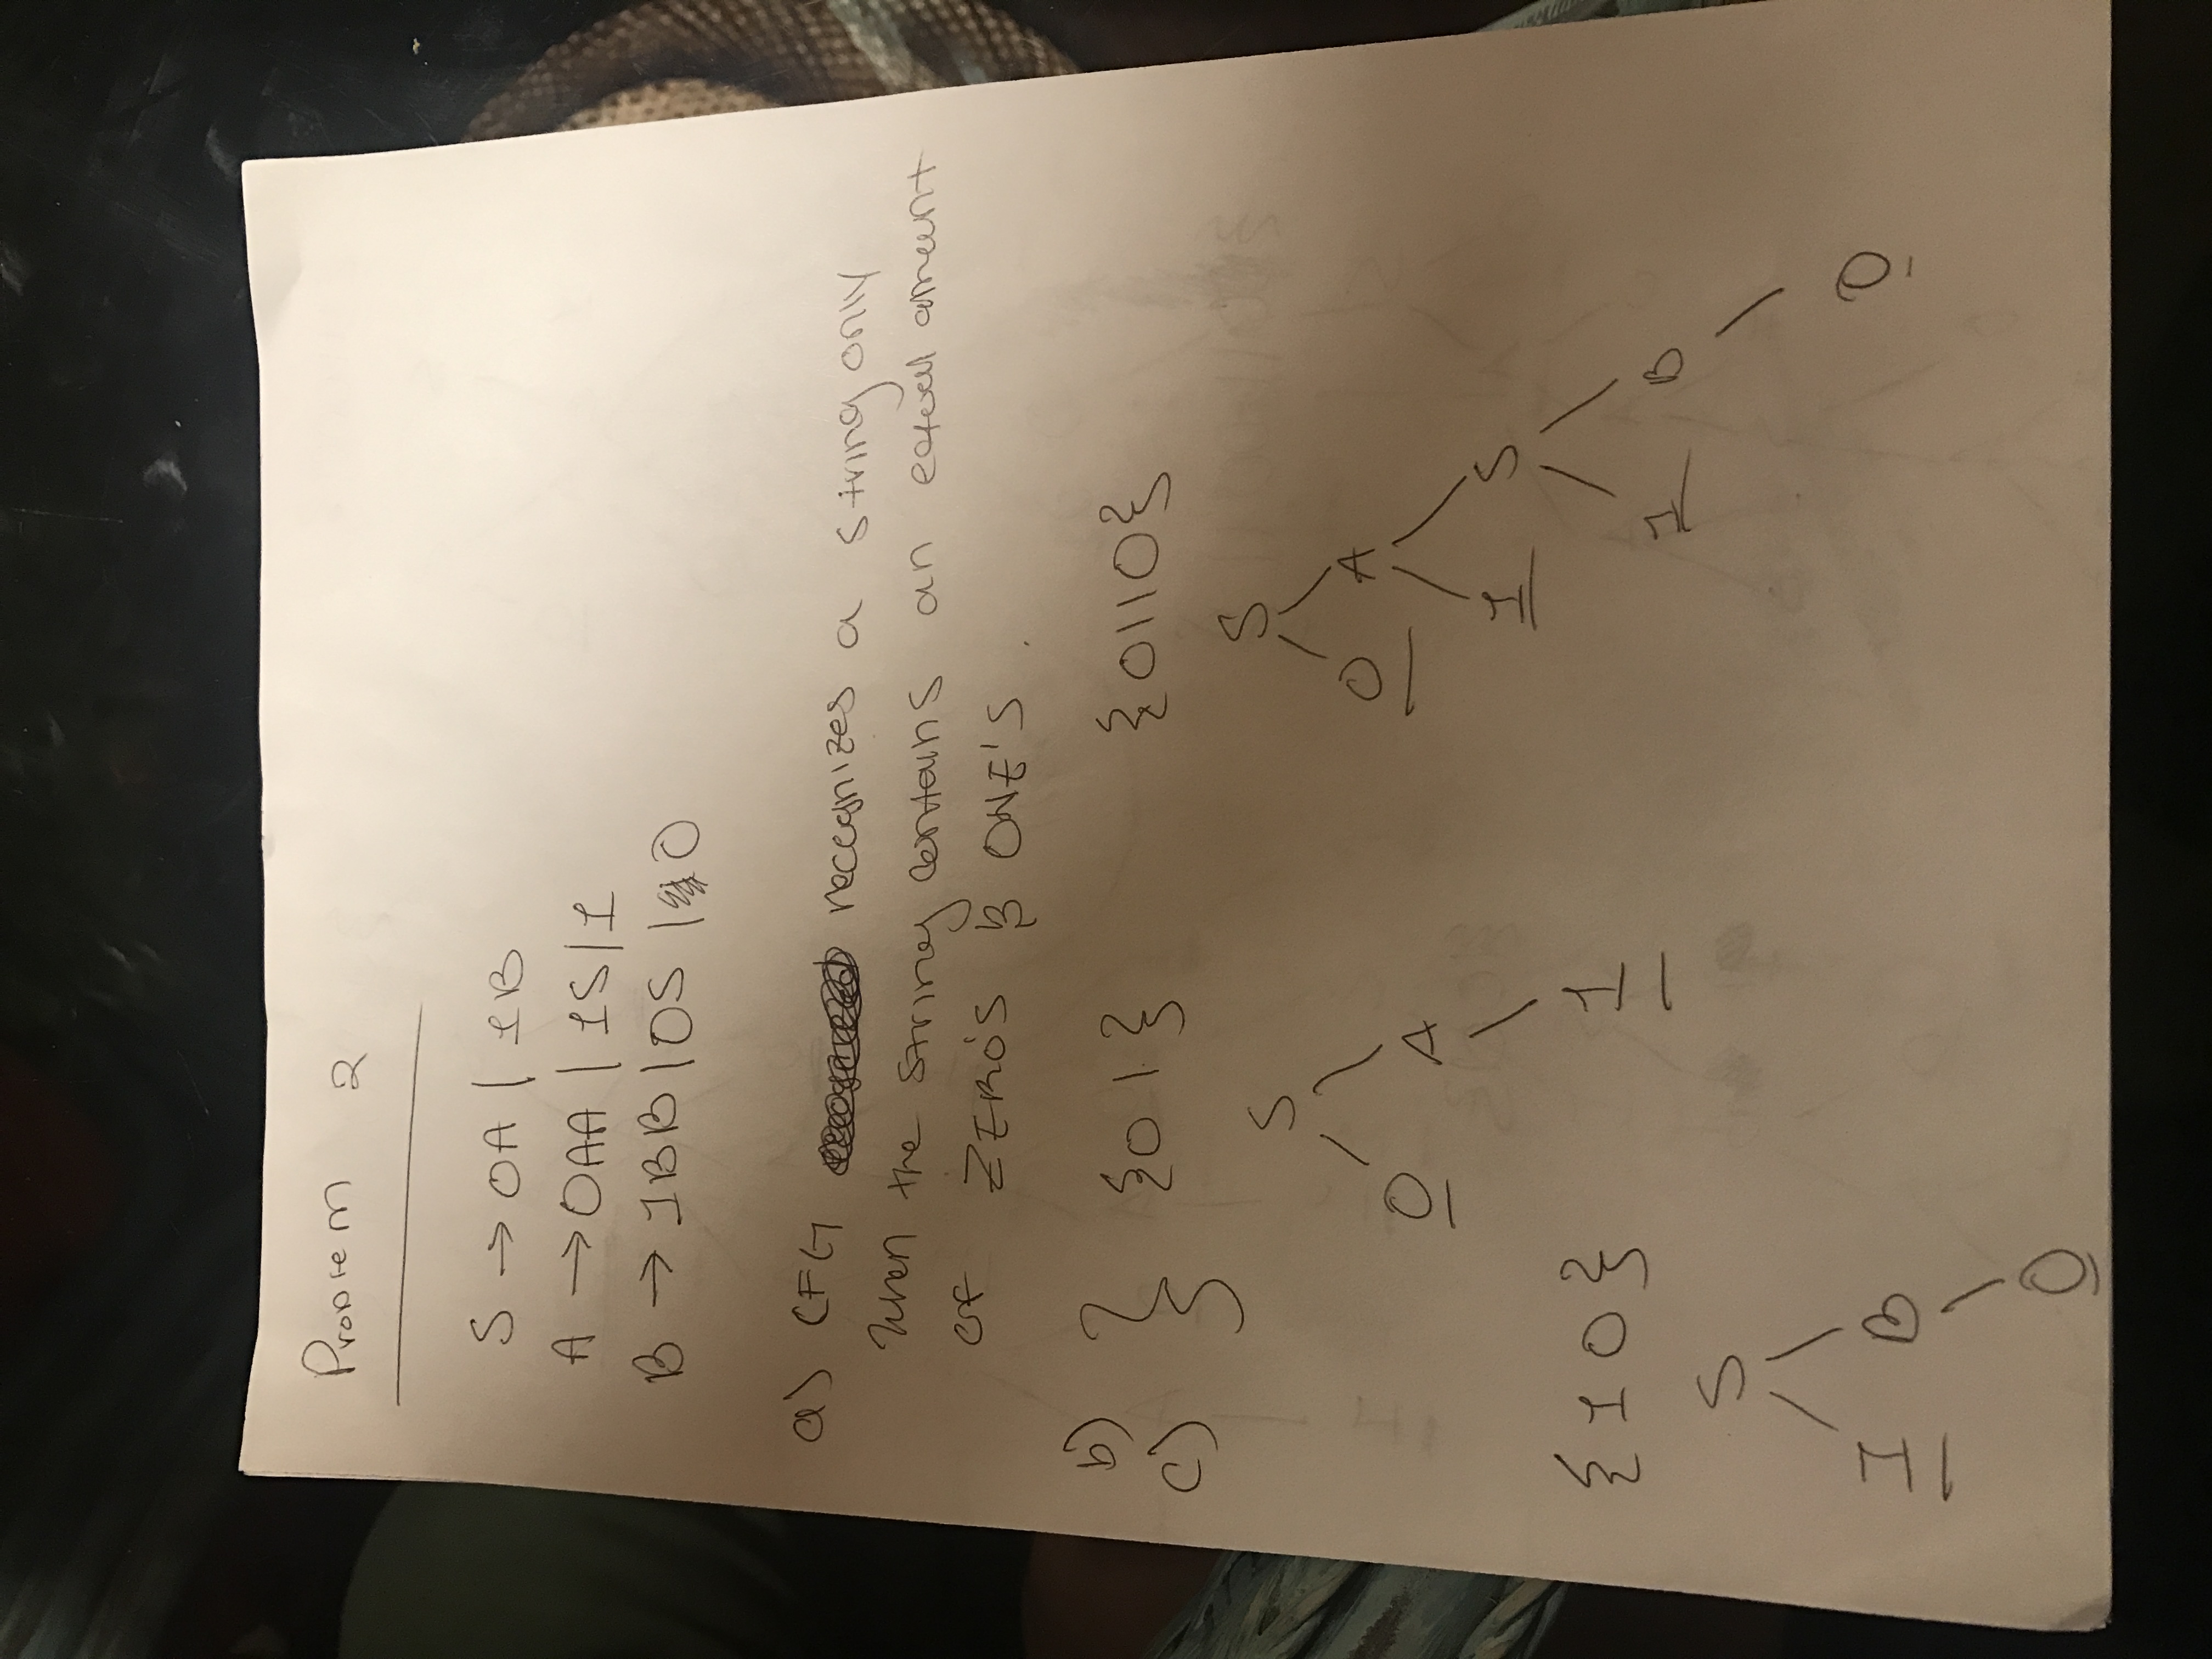 Problem 2
S → 0A | 1B
A → 0AA | 1S | 1
B → 1BB | 0S | 0
a) CFG recognizes a string only
when the string contains an equal amount
of ZERO'S & ONE'S.
b) } {01} {0110}
c)
S
0 A
1
S
0 A
1 S
1 B
0
{10}
S
1 B
0